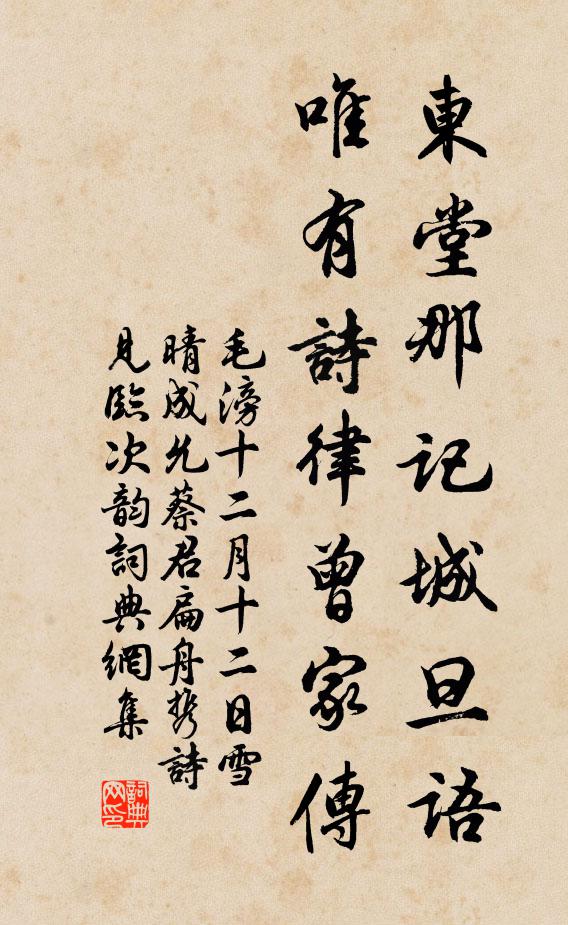 東堂那記城旦語
唯有詩律曾家傳
毛滂十二月十二日雪
晴成允蔡君扁舟携詩
見臨次韵詞典網集
詞典
网印